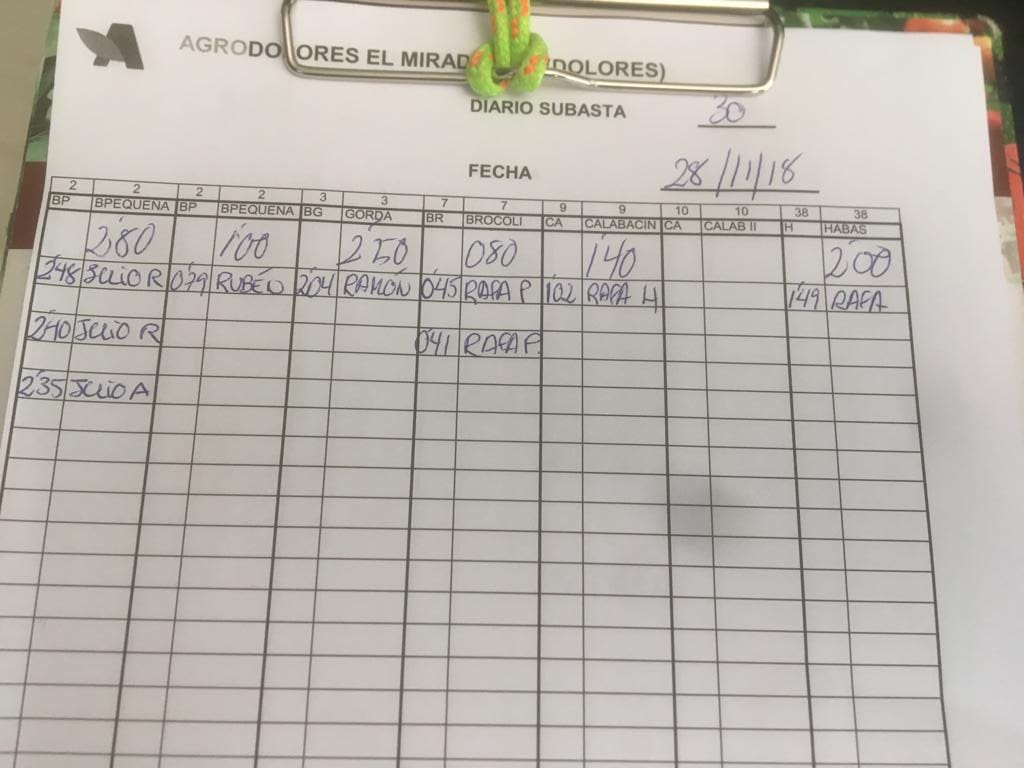 AGRODOLORES EL MIRAD (DOLORES)
DIARIO SUBASTA 30
FECHA 28/11/18
2 2 2 2 3 3 7 7 9 9 10 10 38 38
BP BPEQUENA BP BPEQUENA BG GORDA BR BROCOLI CA CALABACIN CA CALAB II H HABAS
2'80 1'00 2'50 0'80 1'40 2'00
2'48 JULIO R 0'79 RUBÉN 2'04 RAMÓN 0'45 RAFA P 1'02 RAFA H 1'49 RAFA
2'40 JULIO R 0'41 RAFA P.
2'35 JULIO A